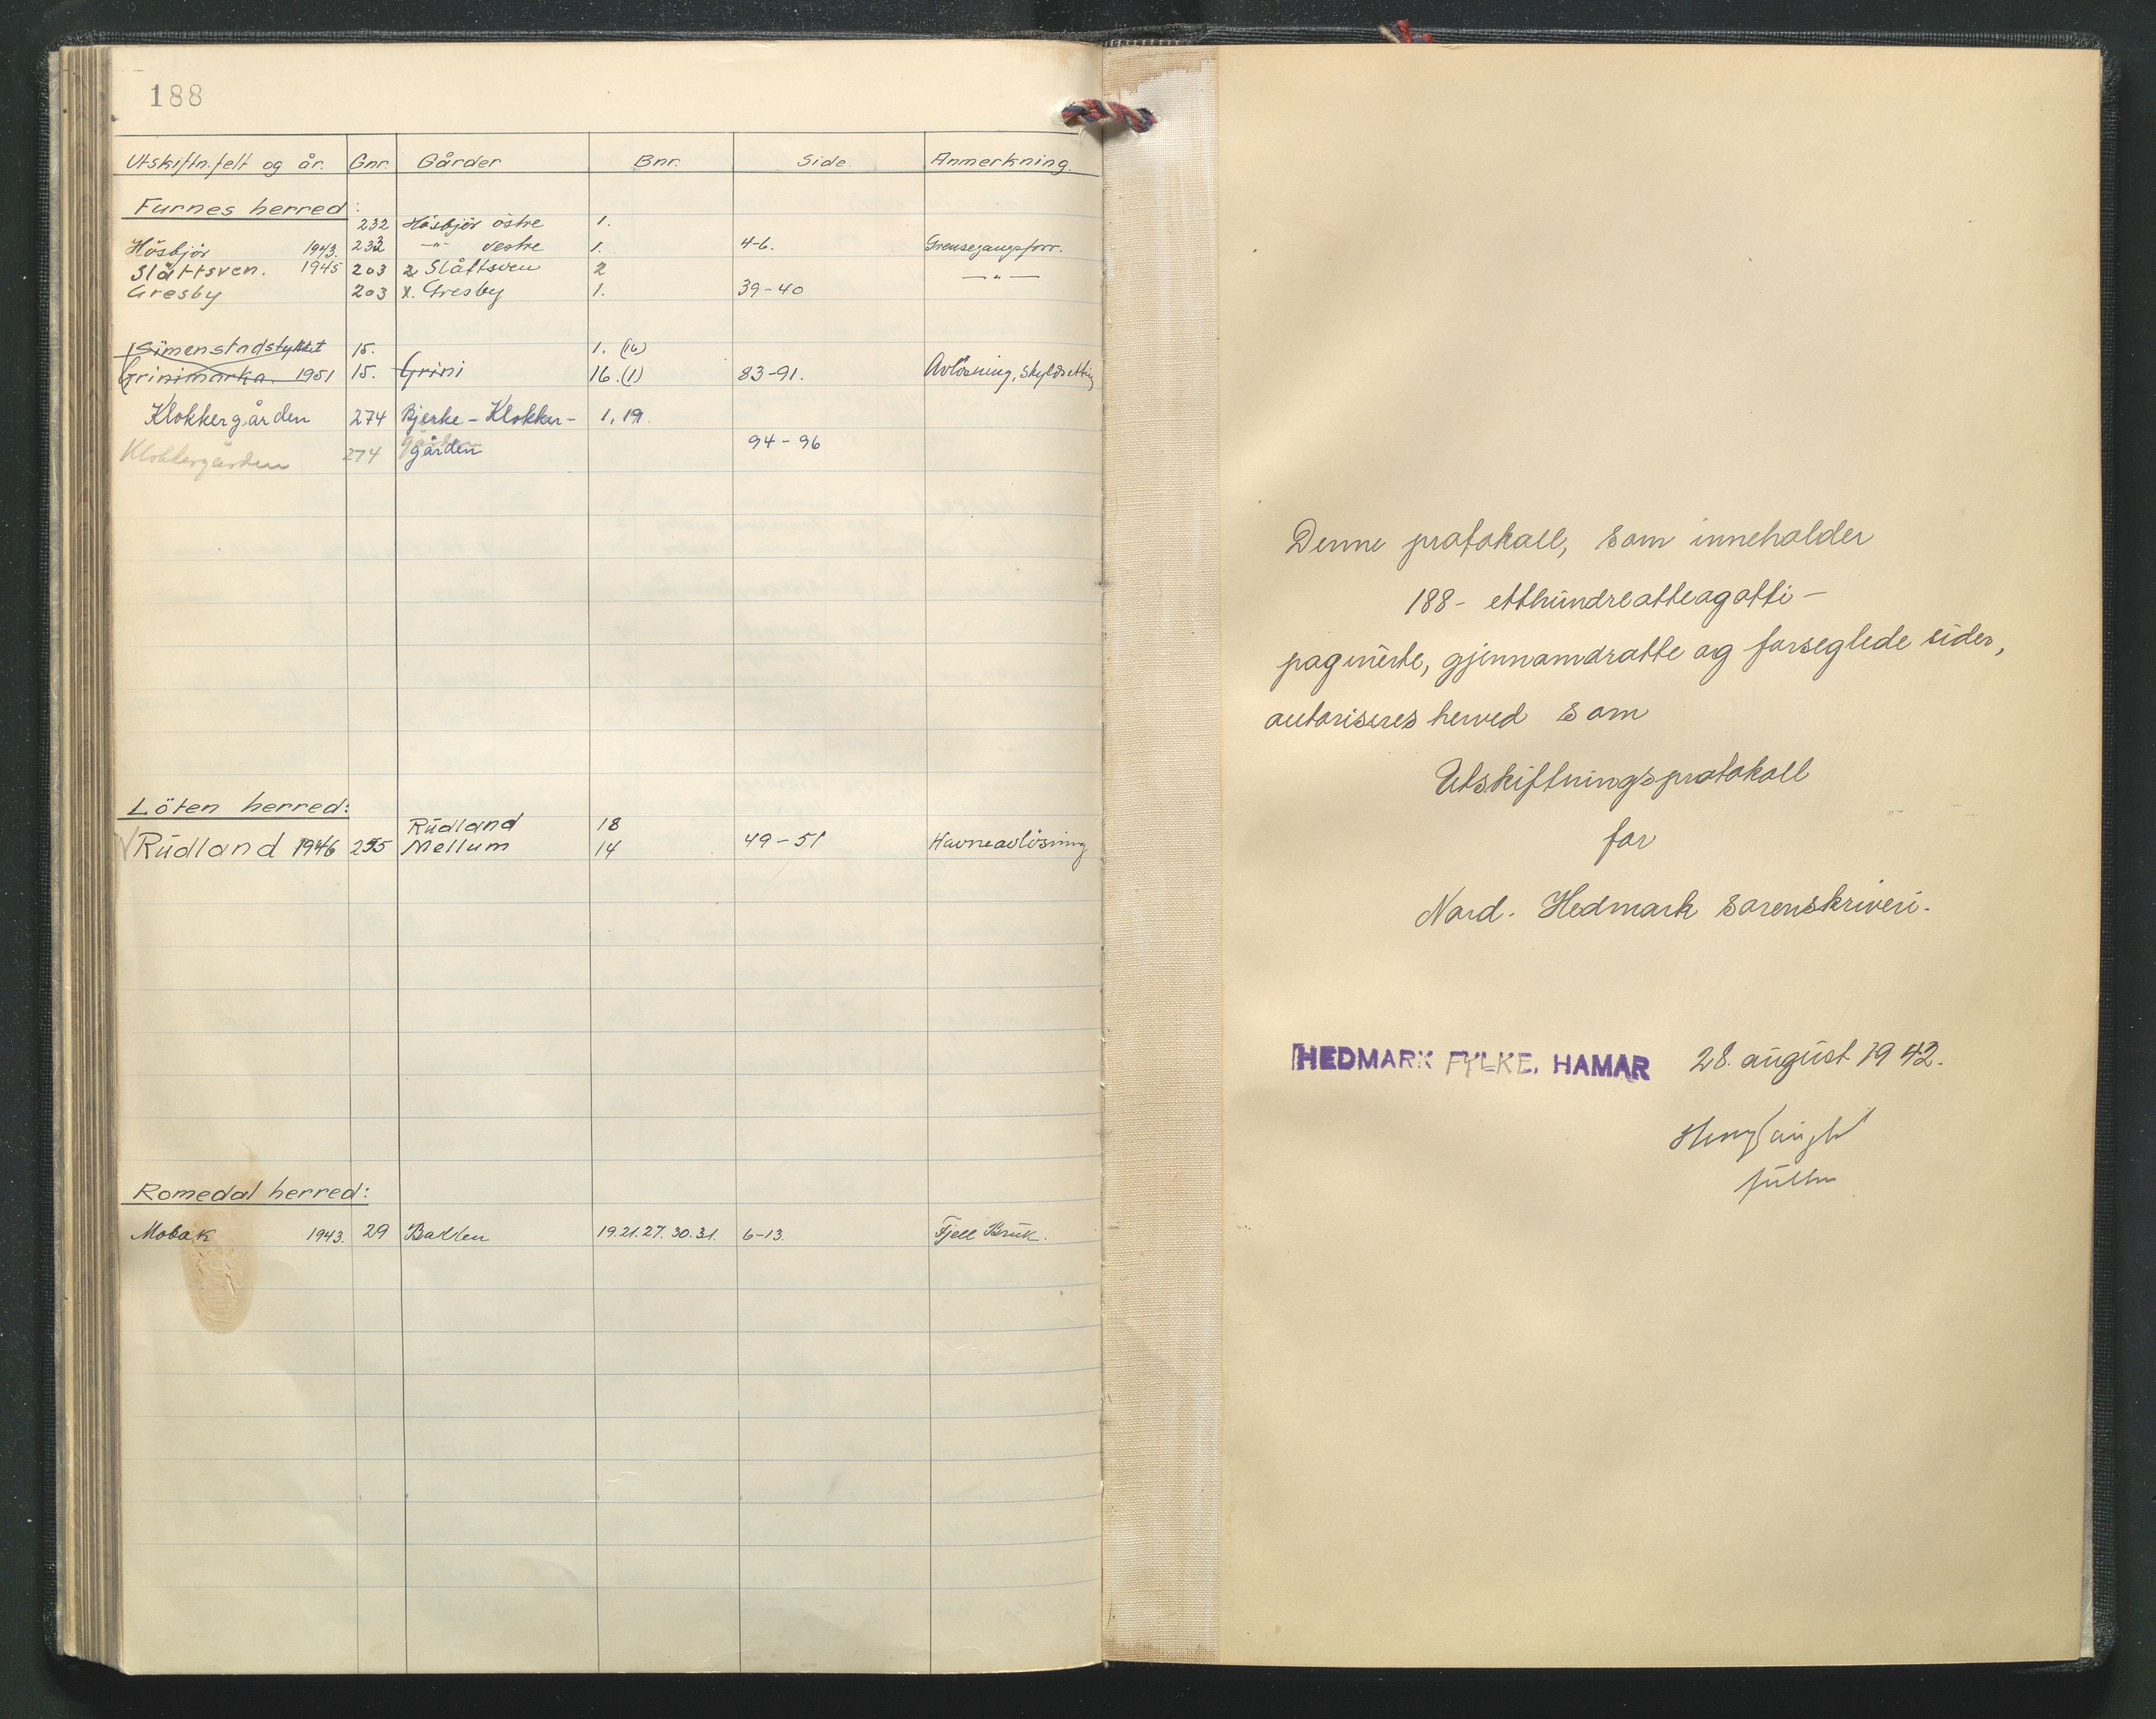 188
Utskiftn.felt og år. Gnr. Gårder Bnr. Side. Anmerkning.
Furnes herred:
232 Hösbjör östre 1.
Hösbjör 1943. 232 -"- vestre 1. 4-6. Grensegangsforr.
Slåttsven. 1945 203 2 Slåttsven 2 -"-
Gresby 203 x. Gresby 1. 39-40
Simenstadstykket 15. 1. (16)
Grinimarka. 1951 15. Grini 16. (1) 83-91. Avlösning, skyldsetting
Klokkergården 274 Bjerke-Klokker- 1, 19.
Klokkergården 274 gården 94-96
Löten herred:
Rudland 18
Rudland 1946 255 Mellum 14 49-51 Havneavlösning
Romedal herred:
Mobak 1943. 29 Bakken 19.21.27.30.31. 6-13. Fjell Bruk.
Denne protokoll, som inneholder
188- etthundreatteogatti-
paginerte, gjennomdratte og forseglede sider,
autoriseres herved som
Utskiftningsprotokoll
for
Nord-Hedmark sorenskriveri.
HEDMARK FYLKE, HAMAR 28. august 1942.